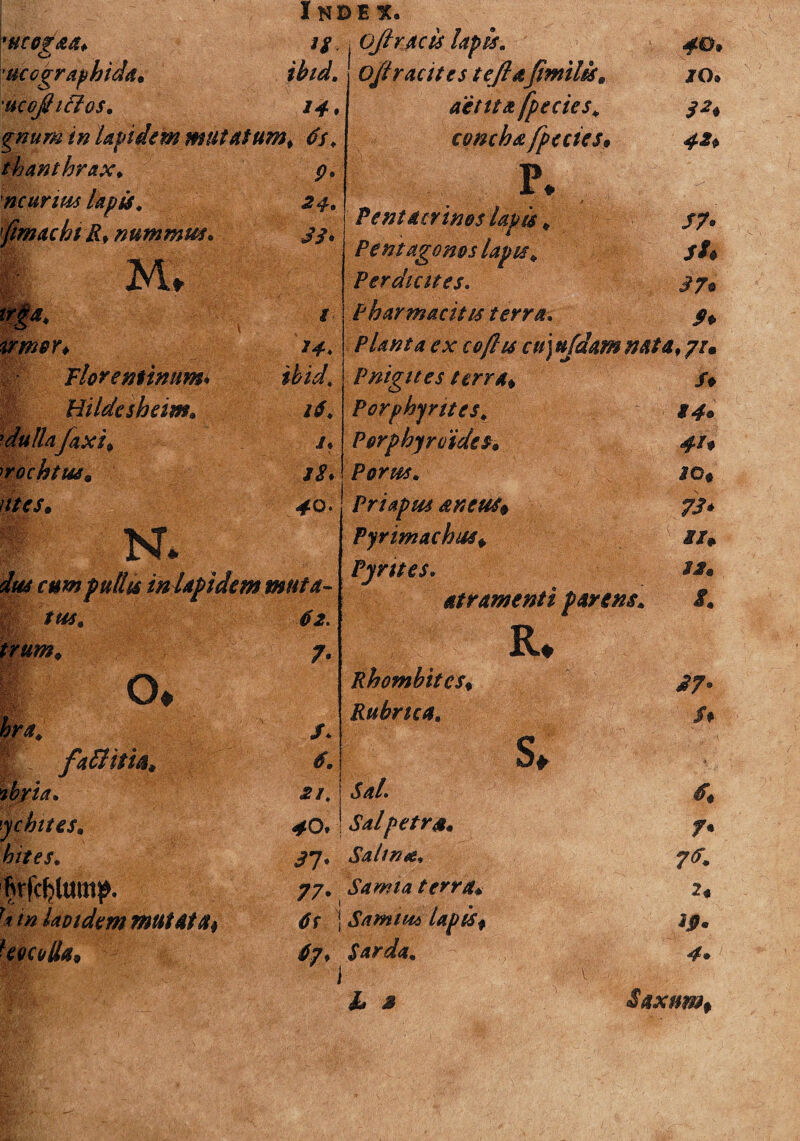 INDEX.
'ucogææ. 18.
'ucographida. ibid.
'ucostictos. 14.
gnum in lapidem mutatum. 61.
thanthrax. 9.
'ncurius lapis. 24.
'simachi R. nummus. 33.
M.
arga. 1
armor. 14.
Florentinum. ibid.
Hildesheim. 16.
edulla saxi. 1.
orochtus. 18.
ites. 40.
N.
dus cum pullis in lapidem muta-
tus. 62.
trum. 7.
O.
hra. 5.
factitia. 6.
mbria. 21.
ychites. 40.
hites. 37.
hrschlump. 77.
a in lapidem mutata. 61
teocolla. 67.
Ostracis lapis. 40.
Ostracites testæ similis. 10.
aëtitæ species. 32.
conchæ species. 42.
P.
Pentacrinos lapis. 57.
Pentagonos lapis. 58.
Perdicites. 37.
Pharmacitis terra. 9.
Planta ex costis cujusdam nata. 71.
Pnigites terra. 5.
Porphyrites. 14.
Porphyroides. 41.
Porus. 10.
Priapus æneus. 73.
Pyrimachus. 11.
Pyrites. 12.
atramenti parens. 8.
R.
Rhombites. 37.
Rubrica. 5.
S.
Sal. 6.
Salpetra. 7.
Salinæ. 76.
Samia terra. 2.
Samius lapis. 19.
Sarda. 4.
L 2 Saxum.